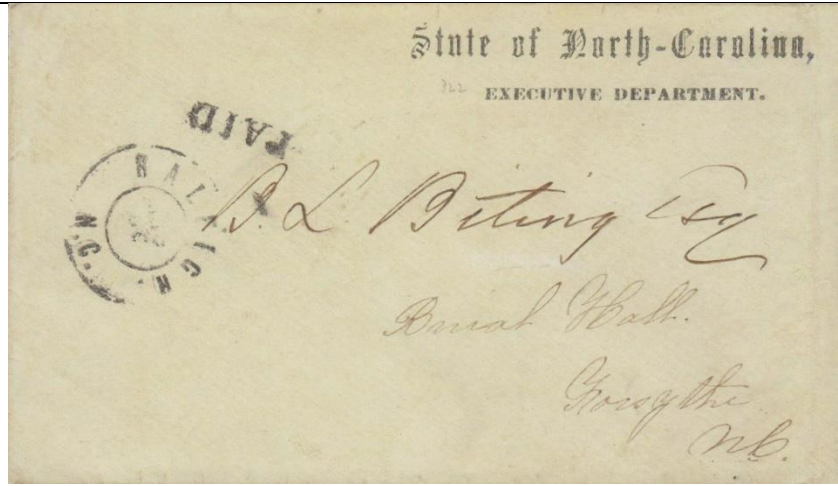 State of North-Carolina,
EXECUTIVE DEPARTMENT.
322
PAID
RALEIGH. N.C.
B. L. Biting Esq
Rural Hall.
Forsythe
N.C.